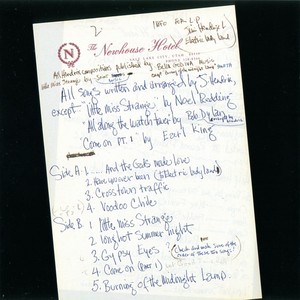 2
INFO FOR L P
Jimi Hendrix L.P.
Electric Lady Land
N
N
The Newhouse Hotel
All Hendrix compositions published by Bella Godiva Music
little Miss Strange by
All songs written and arranged by J. Hendrix,
except "little Miss Strange" by Noel Redding
"All along the watch tower" by Bob Dylan
"Come on PT. 1" by Earl King
Side A 1. ...And the Gods made love
2. Have you ever been (Electric lady land)
3. Crosstown traffic
4. Voodoo Chile
Side B. 1 little Miss Strange
2 long hot Summer night
3. Gypsy Eyes ?
(Check and make sure of the
order of these two songs)
4. Come on (PART 1)
5. Burning of the Midnight Lamp.